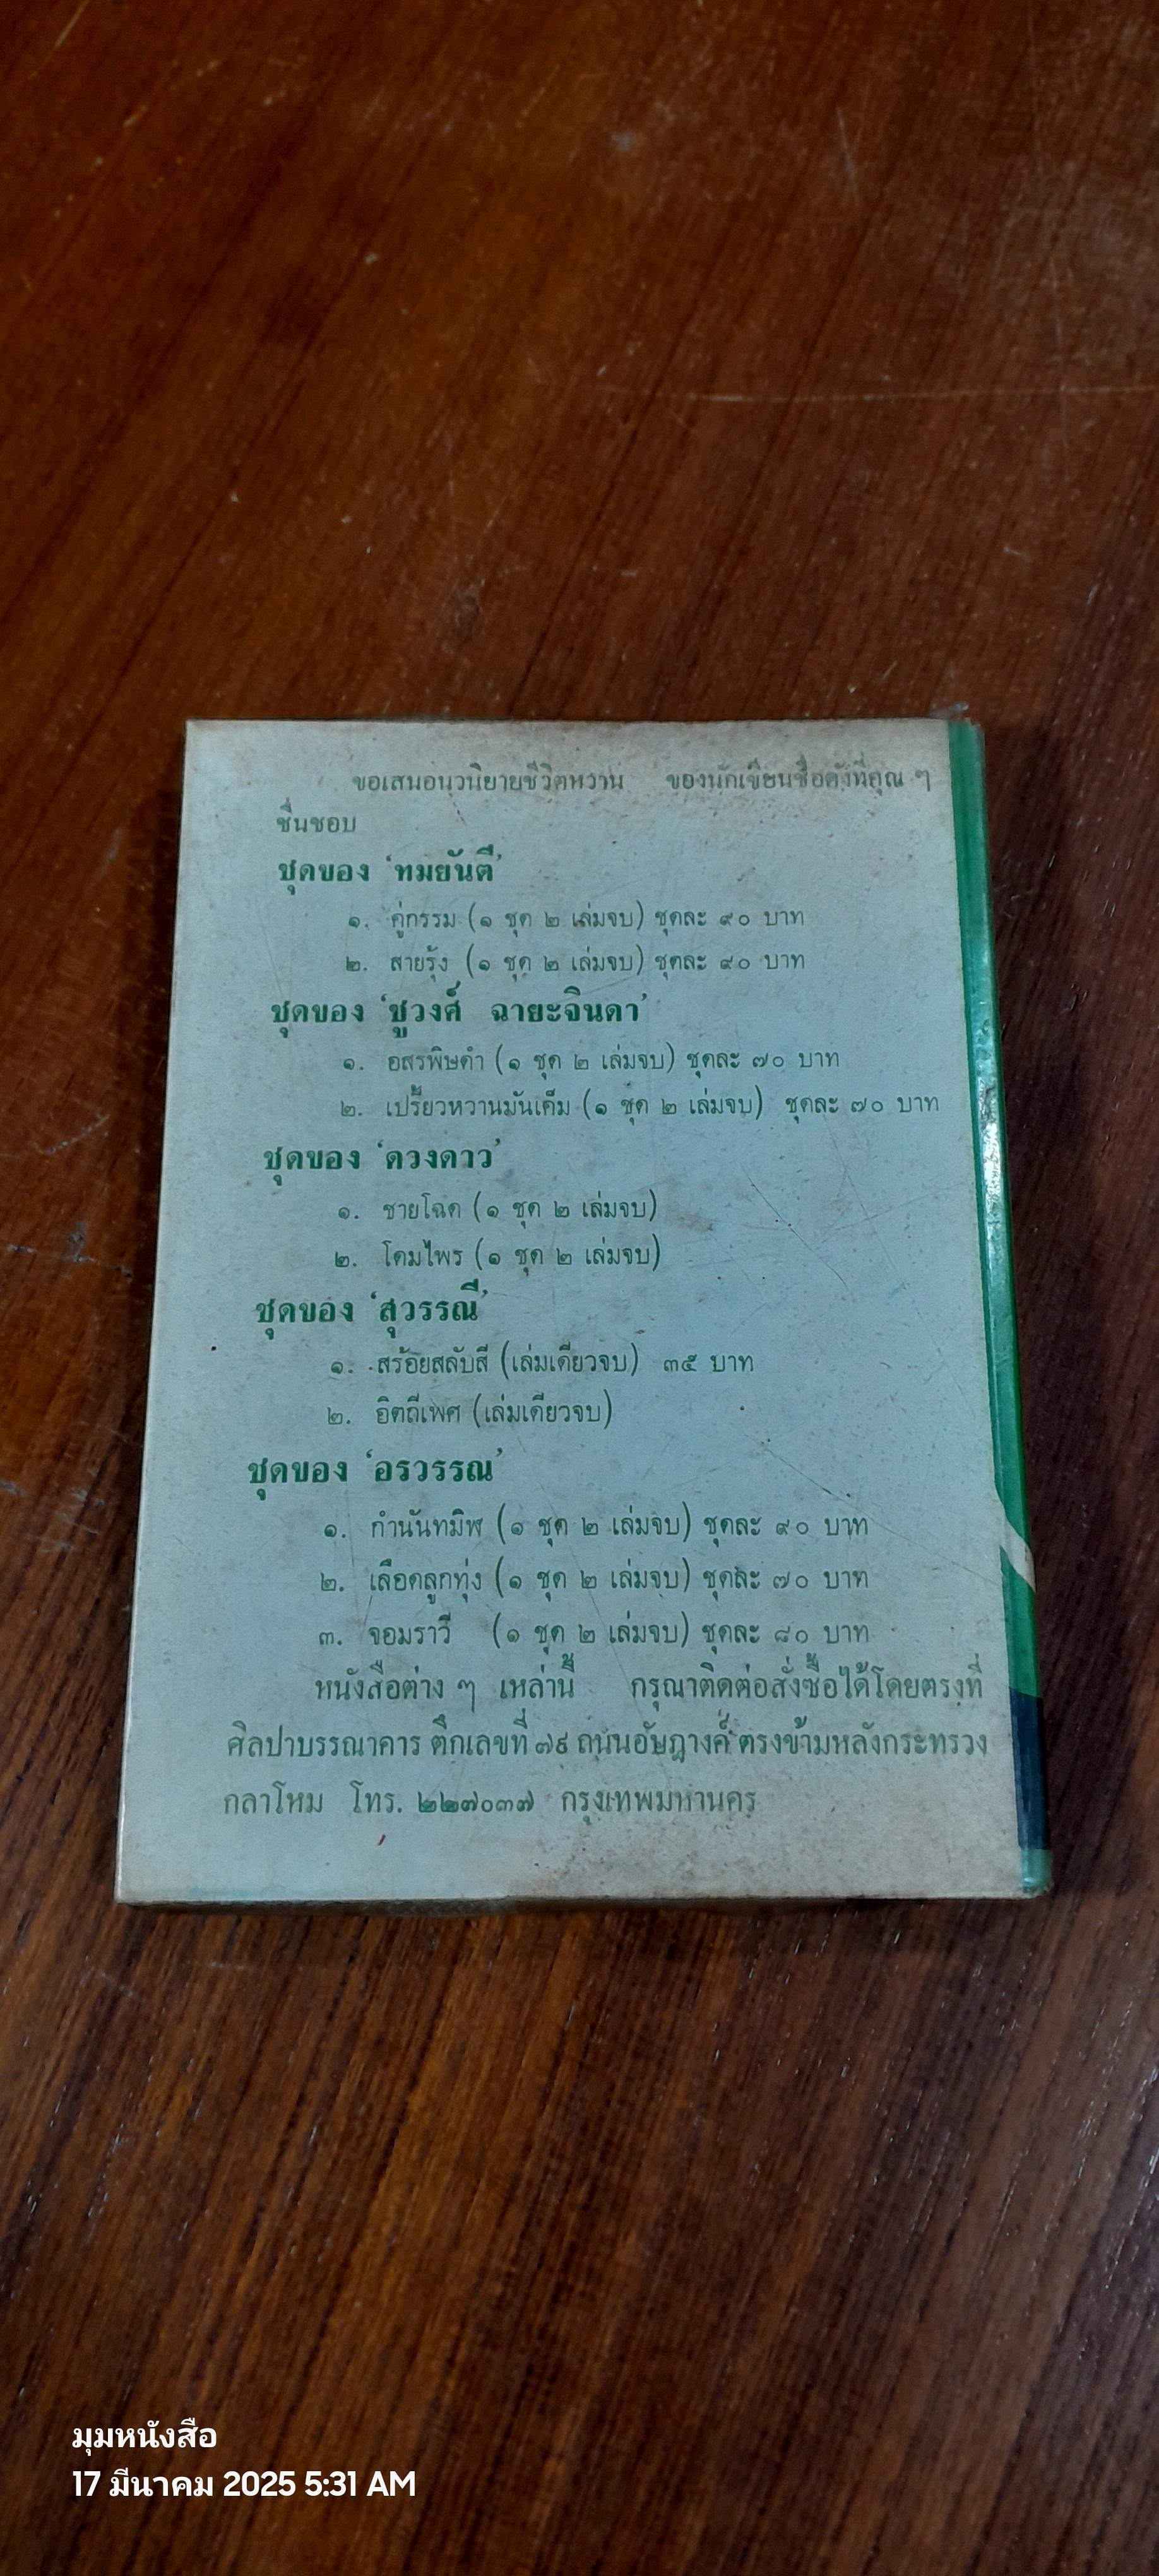 ขอเสนอนวนิยายชีวิตหวาน ของนักเขียนชื่อดังที่คุณ ๆ
ชื่นชอบ
ชุดของ 'ทมยันตี'
๑. คู่กรรม (๑ ชุด ๒ เล่มจบ) ชุดละ ๙๐ บาท
๒. สายรุ้ง (๑ ชุด ๒ เล่มจบ) ชุดละ ๙๐ บาท
ชุดของ 'ชูวงศ์ ฉายะจินดา'
๑. อสรพิษดำ (๑ ชุด ๒ เล่มจบ) ชุดละ ๗๐ บาท
๒. เปรี้ยวหวานมันเค็ม (๑ ชุด ๒ เล่มจบ) ชุดละ ๗๐ บาท
ชุดของ 'ดวงดาว'
๑. ชายโฉด (๑ ชุด ๒ เล่มจบ)
๒. โคมไพร (๑ ชุด ๒ เล่มจบ)
ชุดของ 'สุวรรณี'
๑. สร้อยสลับสี (เล่มเดียวจบ) ๓๕ บาท
๒. อิตถีเพศ (เล่มเดียวจบ)
ชุดของ 'อรวรรณ'
๑. กำนันทมิฬ (๑ ชุด ๒ เล่มจบ) ชุดละ ๙๐ บาท
๒. เลือดลูกทุ่ง (๑ ชุด ๒ เล่มจบ) ชุดละ ๗๐ บาท
๓. จอมราวี (๑ ชุด ๒ เล่มจบ) ชุดละ ๘๐ บาท
หนังสือต่าง ๆ เหล่านี้ กรุณาติดต่อสั่งซื้อได้โดยตรงที่
ศิลปาบรรณาคาร ตึกเลขที่ ๗๙ ถนนอัษฎางค์ ตรงข้ามหลังกระทรวง
กลาโหม โทร. ๒๒๗๐๓๗ กรุงเทพมหานคร
มุมหนังสือ
17 มีนาคม 2025 5:31 AM